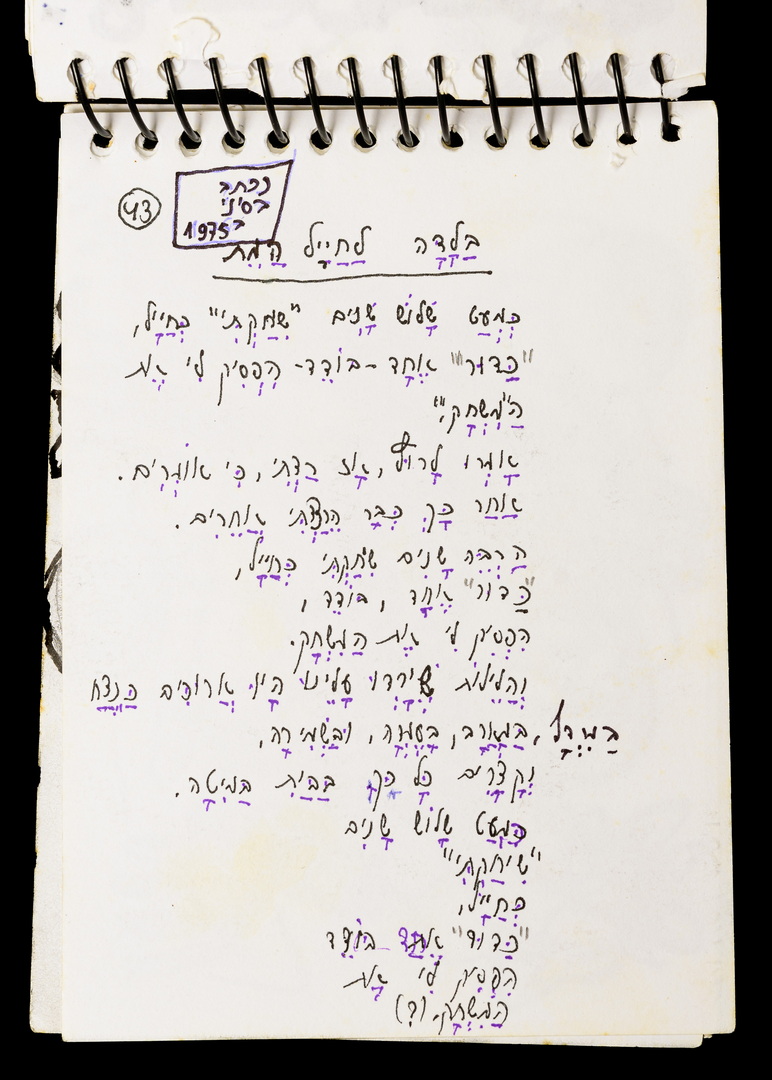 43
נכתב
בסיני
ב 1975
בַּלָּדָה לַחַיָּיל הַמֵּת
כִּמְעַט שָׁלוֹשׁ שָׁנִים "שִׂחַקְתִּי" כְּחַיָּיל,
"כַּדּוּר" אֶחָד - בּוֹדֵד - הִפְסִיק לִי אֶת
הַ"מִּשְׂחָק".
אָמְרוּ לָרוּץ, אָז רַצְתִּי, כִּי אוֹמְרִים.
אַחַר כָּךְ כְּבָר הֵרַצְתִּי אֲחֵרִים.
הַרְבֵּה שָׁנִים שִׂחַקְתִּי כְּחַיָּיל,
"כַּדּוּר" אֶחָד, בּוֹדֵד,
הִפְסִיק לִי אֶת הַמִּשְׂחָק.
וְהַלֵּילוֹת שֶׁיָּרְדוּ עָלֵינוּ הָיוּ אֲרוּכִּים כַּנֶּצַח
בַּסִּיּוּר, בַּמַּאֲרָב, בָּעֶמְדָּה, וּבַשְּׁמִירָה,
וּקְצָרִים כָּל כָּךְ בַּבַּיִת בַּמִּיטָּה.
כִּמְעַט שָׁלוֹשׁ שָׁנִים
"שִׂיחַקְתִּי"
כְּחַיָּיל,
"כַּדּוּר" אֶחָד בּוֹדֵד
הִפְסִיק לִי אֶת
הַמִּשְׂחָק. (?)